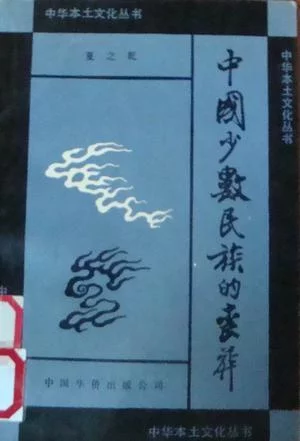 中华本土文化丛书
中华本土文化丛书
夏之乾
中國少數民族的喪葬
中国华侨出版公司
中华本土文化丛书